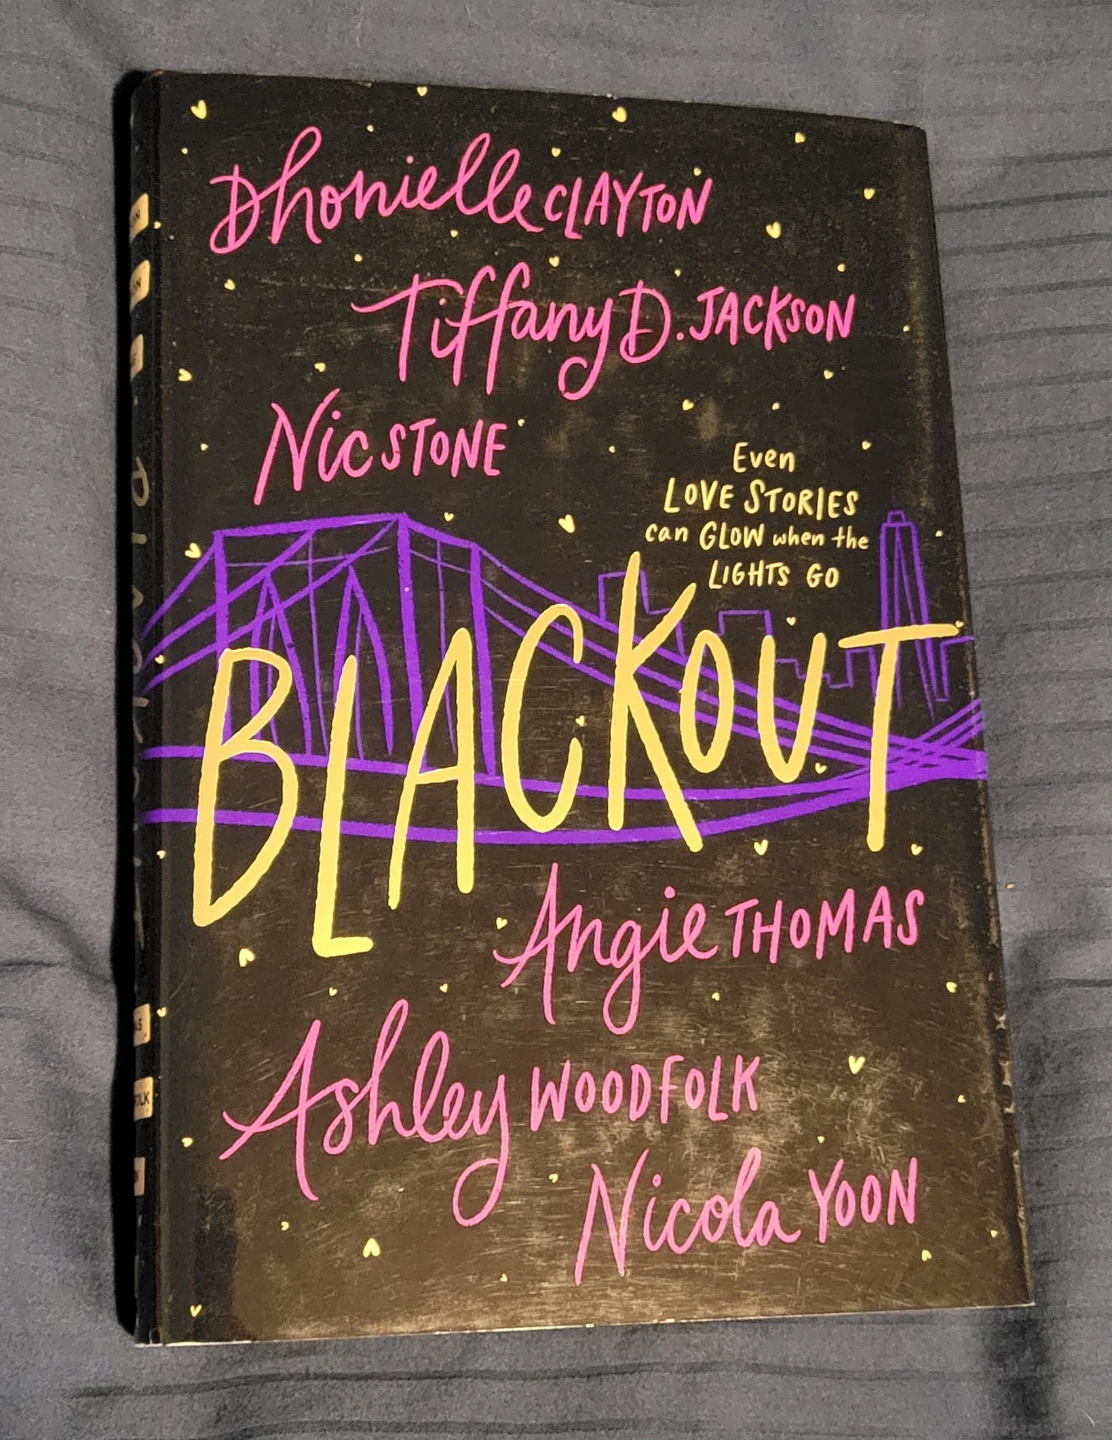 Dhonielle CLAYTON
Tiffany D. JACKSON
Nic STONE
Even
LOVE STORIES
can GLOW when the
LIGHTS GO
BLACKOUT
Angie THOMAS
Ashley WOODFOLK
Nicola YOON